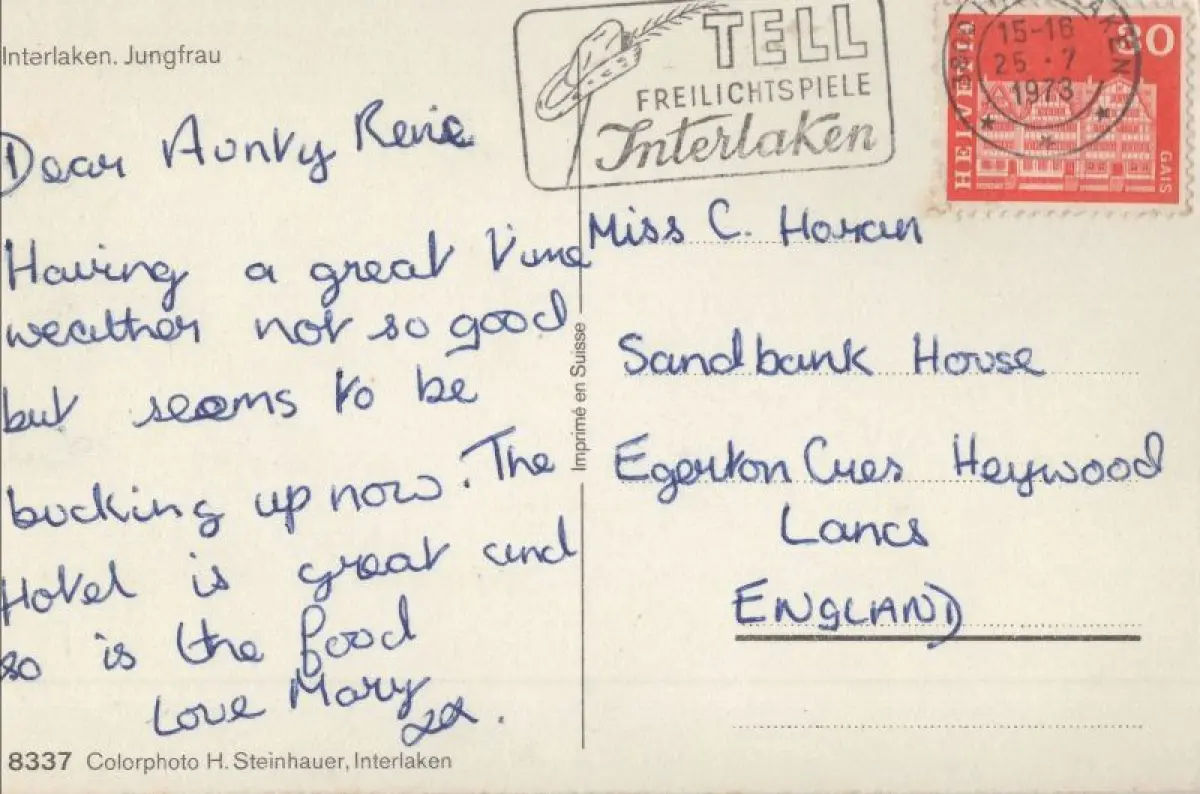 Interlaken. Jungfrau
Dear Aunty Rene
Having a great time
weather not so good
but seems to be
bucking up now. The
Hotel is great and
so is the food
Love Mary
xx.
8337 Colorphoto H. Steinhauer, Interlaken
Imprimé en Suisse
TELL
FREILICHTSPIELE
Interlaken
INTERLAKEN
15-16
25.7
1973
HELVETIA
30
GAIS
Miss C. Horan
Sandbank House
Egerton Cres Heywood
Lancs
ENGLAND